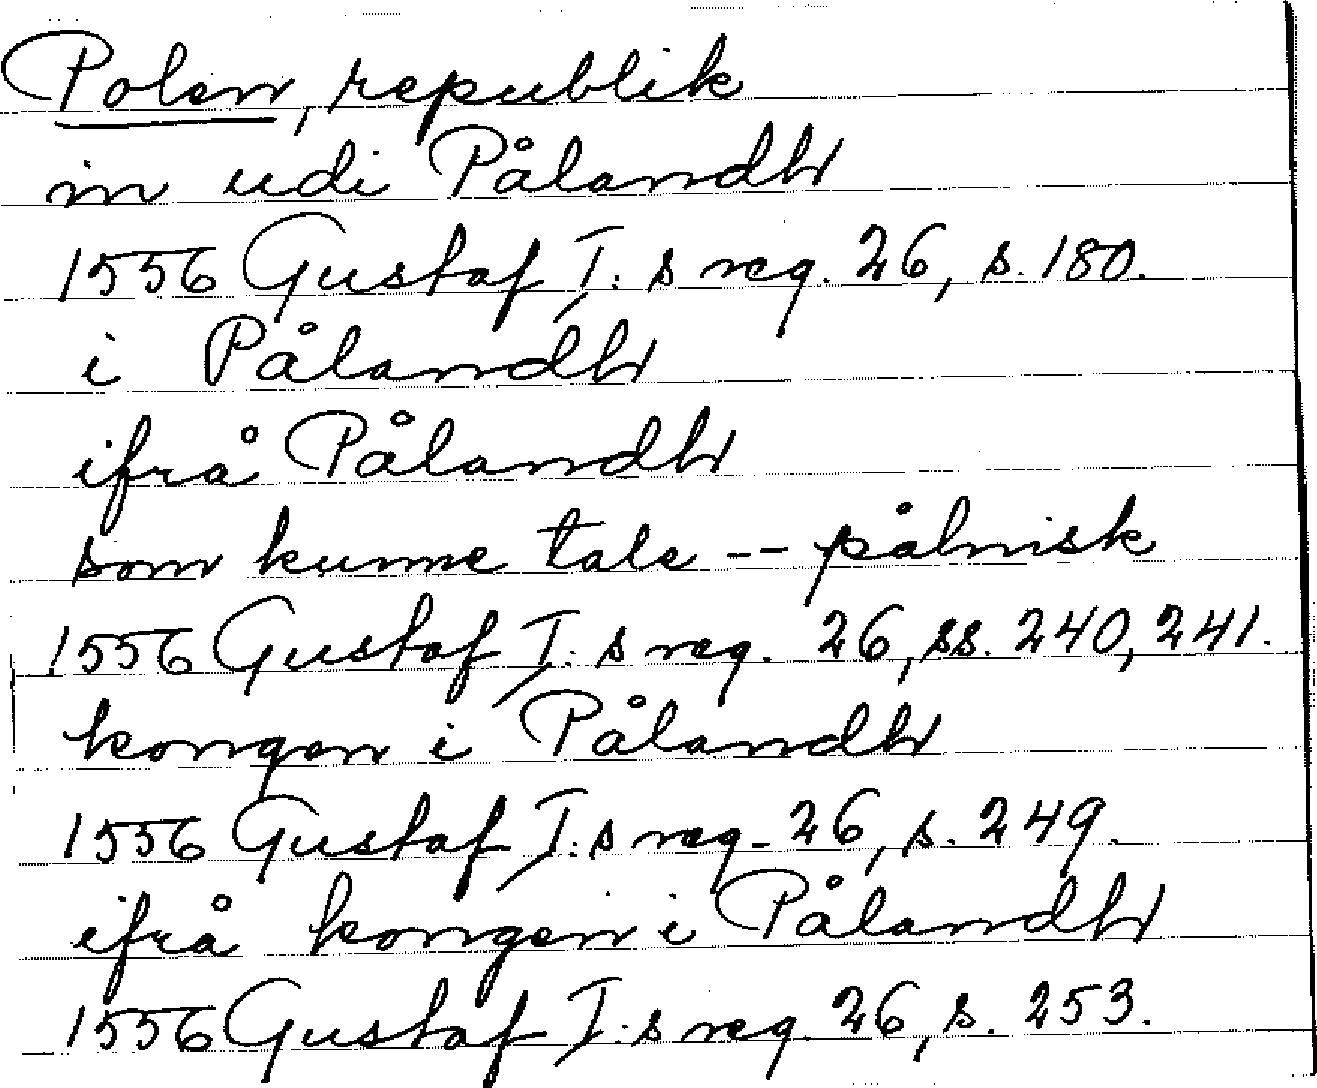 Polen, republik
in udi Pålandh
1556 Gustaf I:s reg. 26, s. 180.
i Pålandh
ifrå Pålandh
som kunne tale -- pålnisk
1556 Gustaf I:s reg. 26, ss. 240, 241.
kongen i Pålandh
1556 Gustaf I:s reg. 26, s. 249.
ifrå kongen i Pålandh
1556 Gustaf I:s reg. 26, s. 253.